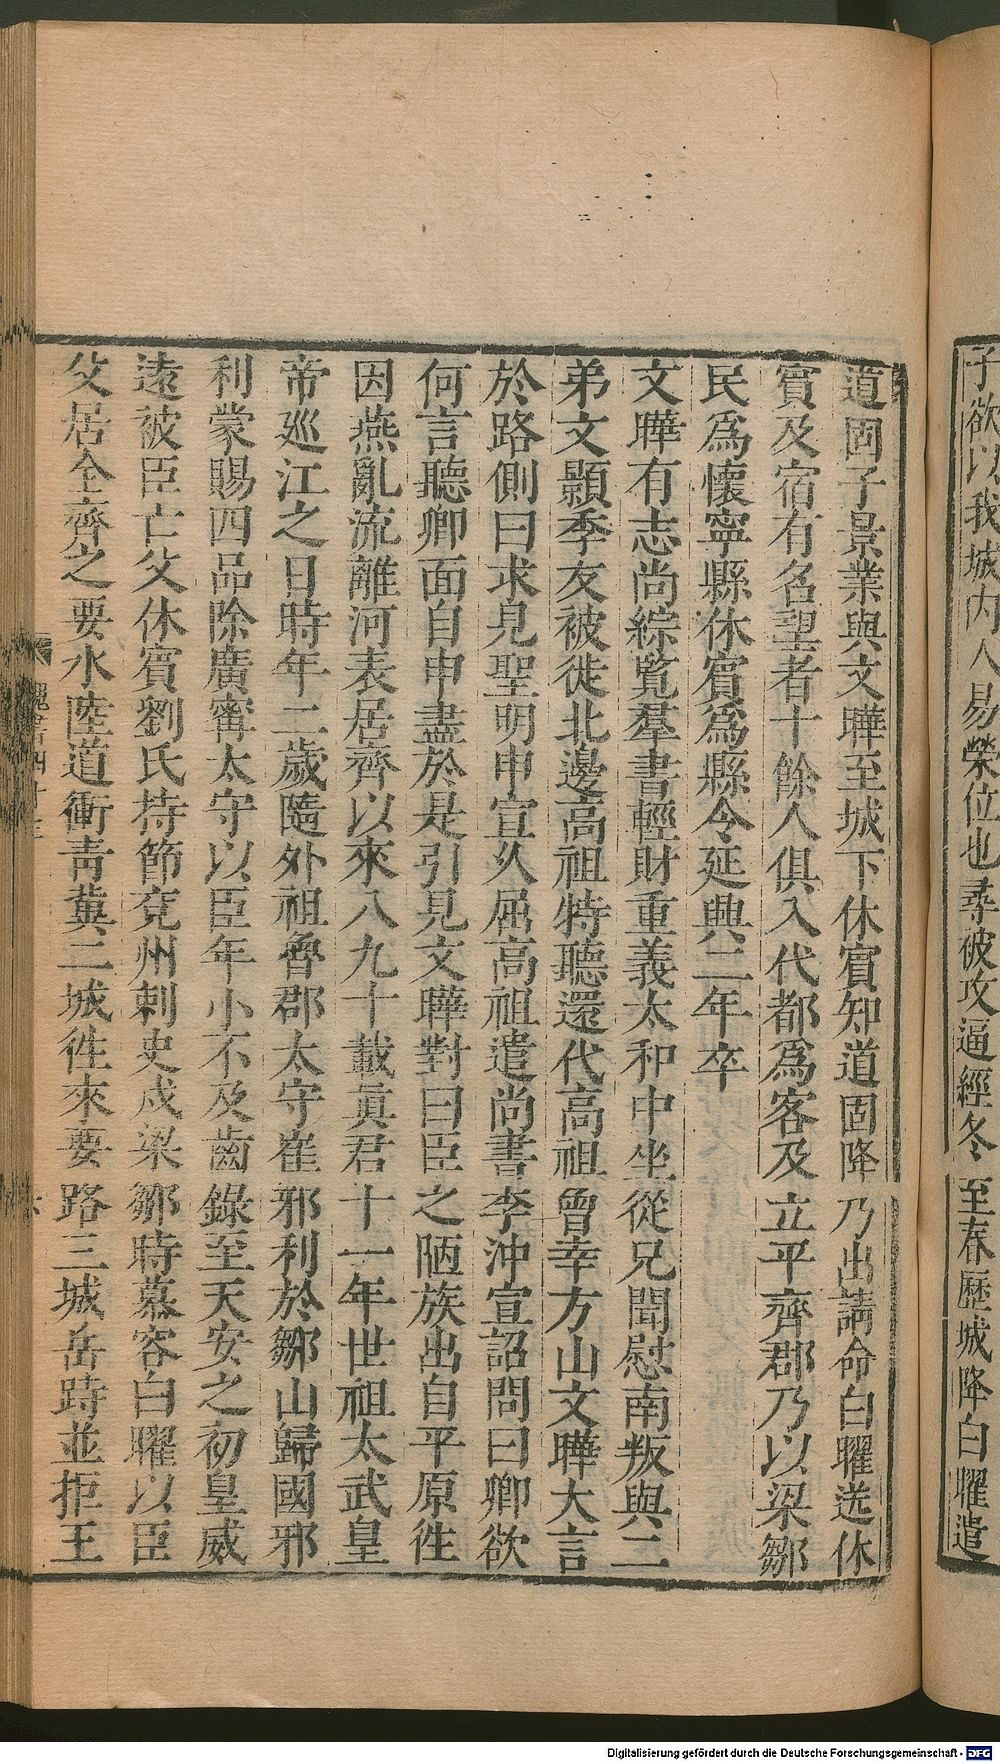 子欲以我城內人易榮位也尋被攻逼經冬至春歷城降白曜遣
道固子景業與文曄至城下休賓知道固降乃出請命白曜送休
賓及宿有名望者十餘人俱入代都爲客及立平齊郡乃以梁鄒
民爲懷寧縣休賓爲縣令延興二年卒
文曄有志尚綜覽羣書輕財重義太和中坐從兄聞慰南叛與二
弟文顥季友被徙北邊高祖特聽還代高祖曾幸方山文曄大言
於路側曰求見聖明申宣久屈高祖遣尚書李沖宣詔問曰卿欲
何言聽卿面自申盡於是引見文曄對曰臣之陋族出自平原往
因燕亂流離河表居齊以來八九十載眞君十一年世祖太武皇
帝巡江之日時年二歲隨外祖魯郡太守崔邪利於鄒山歸國邪
利蒙賜四品除廣甯太守以臣年小不及齒錄至天安之初皇威
遠被臣亡父休賓劉氏持節兗州刺史戍梁鄒時慕容白曜以臣
父居全齊之要水陸道衝靑冀二城往來要路三城岳跱並拒王
魏書四十三
六
Digitalisierung gefördert durch die Deutsche Forschungsgemeinschaft - DFG